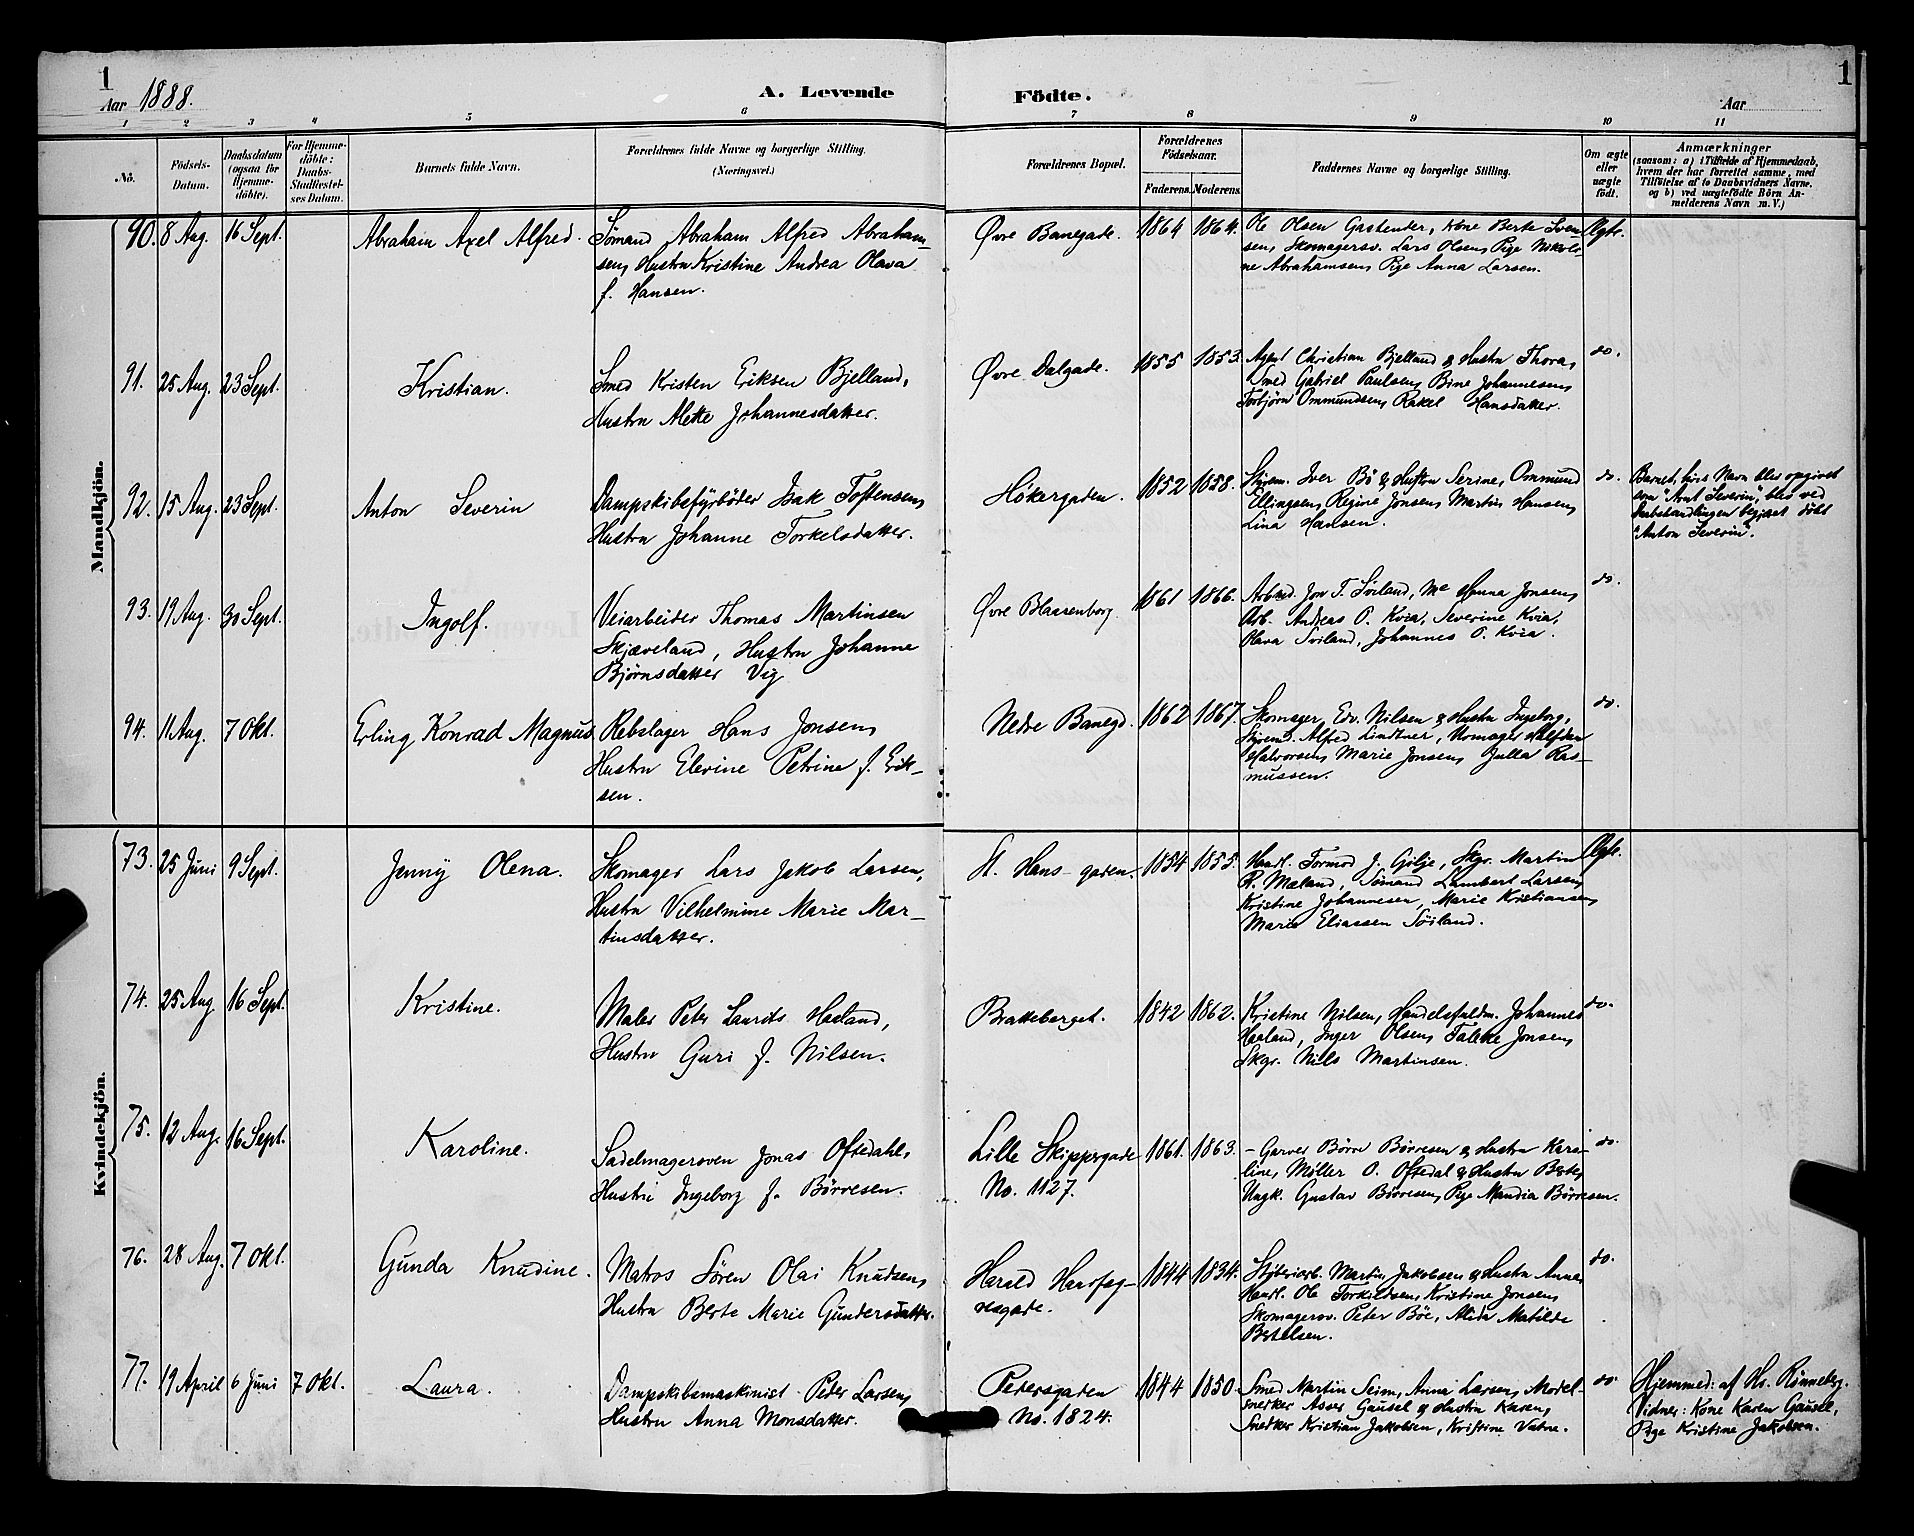 1
Aar 1888.
A. Levende
Födte.
Aar
1
1 2 3 4 5 6 7 8 9 10 11
No.
Födsels-
Datum.
Daabsdatum
(ogsaa for
Hjemme-
döbte).
For Hjemme-
döbte:
Daabs-
Stadfæstel-
ses Datum.
Barnets fulde Navn.
Forældrenes fulde Navne og borgerlige Stilling.
(Næringsvei.)
Forældrenes Bopæl.
Forældrenes
Födselsaar.
Faderens. Moderens.
Faddernes Navne og borgerlige Stilling.
Om ægte
eller
uægte
født.
Anmærkninger
(saasom: a) i Tilfælde af Hjemmedaab,
hvem der har forrettet samme, med
Tilföielse af to Daabsvidners Navne.
og b) ved uægtefödte Börn An-
melderens Navn m. V.)
Mandkjön.
90. 8 Aug. 16 Sept. Abraham Axel Alfred.
Sømand Abraham Alfred Abraham-
sen, Hustru Kristine Andrea Olava
f. Hansen.
Øvre Banegade. 1864 1864.
Ole Olsen Gastender, Kone Berte Sven-
sen, Skomagersv. Lars Olsen, Pige Nikoli-
ne Abrahamsen, Pige Anna Larsen.
Ægte.
91. 25 Aug. 23 Sept. Kristian.
Smed Kristen Eriksen Bjelland,
Hustru Mette Johannesdatter.
Øvre Dalgade. 1855 1853.
Agent Christian Bjelland & Hustru Thora,
Smed Gabriel Paulsen, Bine Johannesen,
Torbjörn Ommundsen, Rakel Hansdatter.
do.
92. 15 Aug. 23 Sept. Anton Severin
Dampskibsfyrböder Isak Toftensen,
Hustru Johanne Torkelsdatter.
Høkergaden. 1852 1858.
Skjem. Iver Bö & Hustru Serine, Ommund
Ellingsen, Regine Jonsen, Martin Hansen,
Lina Hansen.
do.
Barnet, hvis Navn blev opgivet
som "Arnt Severin", blev ved
Daabshandlingen begjært döbt
"Anton Severin".
93. 19 Aug. 30 Sept. Ingolf.
Veiarbeider Thomas Martinsen
Skjæveland, Hustru Johanne
Bjørnsdatter Vig
Øvre Blaasenborg 1861 1866.
Arbmd. Jon T. Soiland, Me Hanna Jonsen,
Arb. Andreas O. Kvia, Severine Kvia,
Olava Soiland, Johannes O. Kvia.
do.
94. 11 Aug. 7 Okt. Erling Konrad Magnus.
Rebslager Hans Jonsen,
Hustru Elevine Petrine f. Erik-
sen.
Nedre Banegd. 1862 1867.
Skomager Edv. Nilsen & Hustru Ingeborg,
Alfred Lindtner, Halfdan
Halvorsen, Marie Jonsen, Julla Ras-
mussen.
do.
Kvindekjön.
73. 25 Juni 9 Sept. Jenny Olena.
Skomager Lars Jakob Larsen,
Hustru Vilhelmine Marie Mar-
tinsdatter.
St. Hans-gaden. 1854 1855.
Handl. Tormod J. Gilje, Skgr. Martin
R. Mæland, Sømand Lambert Larsen,
Kristine Johannesen, Marie Kristiansen,
Marie Eliassen Söiland.
Ægte.
74. 25 Aug 16 Sept. Kristine.
Maler Peter Laurits Haaland,
Hustru Guri f. Nilsen.
Bratteberget. 1842 1862.
Kristine Nilsen, Handelsfuldm. Johannes
Haaland, Inger Olsen, Talette Jonsen,
Skgr. Nils Martinsen.
do.
75. 12 Aug. 16 Sept. Karoline.
Sadelmagersven Jonas Oftedahl,
Hustru Ingeborg f. Börresen.
Lille Skippergade
No. 1127.
1861. 1863.
- Garver Börre Börresen & Hustru Karo-
line, Møller O. Oftedal & Hustru Berte,
Ungk. Gustav Börresen, Pige Mandia Börresen.
do.
76. 28 Aug. 7 Okt. Gunda Knudine.
Matros Sören Olai Knudsen,
Hustru Berte Marie Gundersdatter.
Harald Haarfag-
resgade.
1844 1834.
Støberiarb. Martin Jakobsen & Hustru Anne,
Handl. Ole Torkildsen, Kristine Jonsen,
Skomagersv. Peter Böe, Alida Matilde
Bertelsen.
do.
77. 19 April 6 Juni 7 Okt. Laura.
Dampskibsmaskinist Peder Larsen,
Hustru Anna Monsdatter.
Pedersgaden
No. 1824.
1844 1850.
Smed Martin Seim, Anna Larsen, Model-
snedker Asser Gausel & Hustru Karen,
Snedker Kristian Jakobsen, Kristine Vatne.
do.
Hjemmed: af Hr. Rönneby.
Vidner: Kone Karen Gausel,
Pige Kristine Jakobsen.